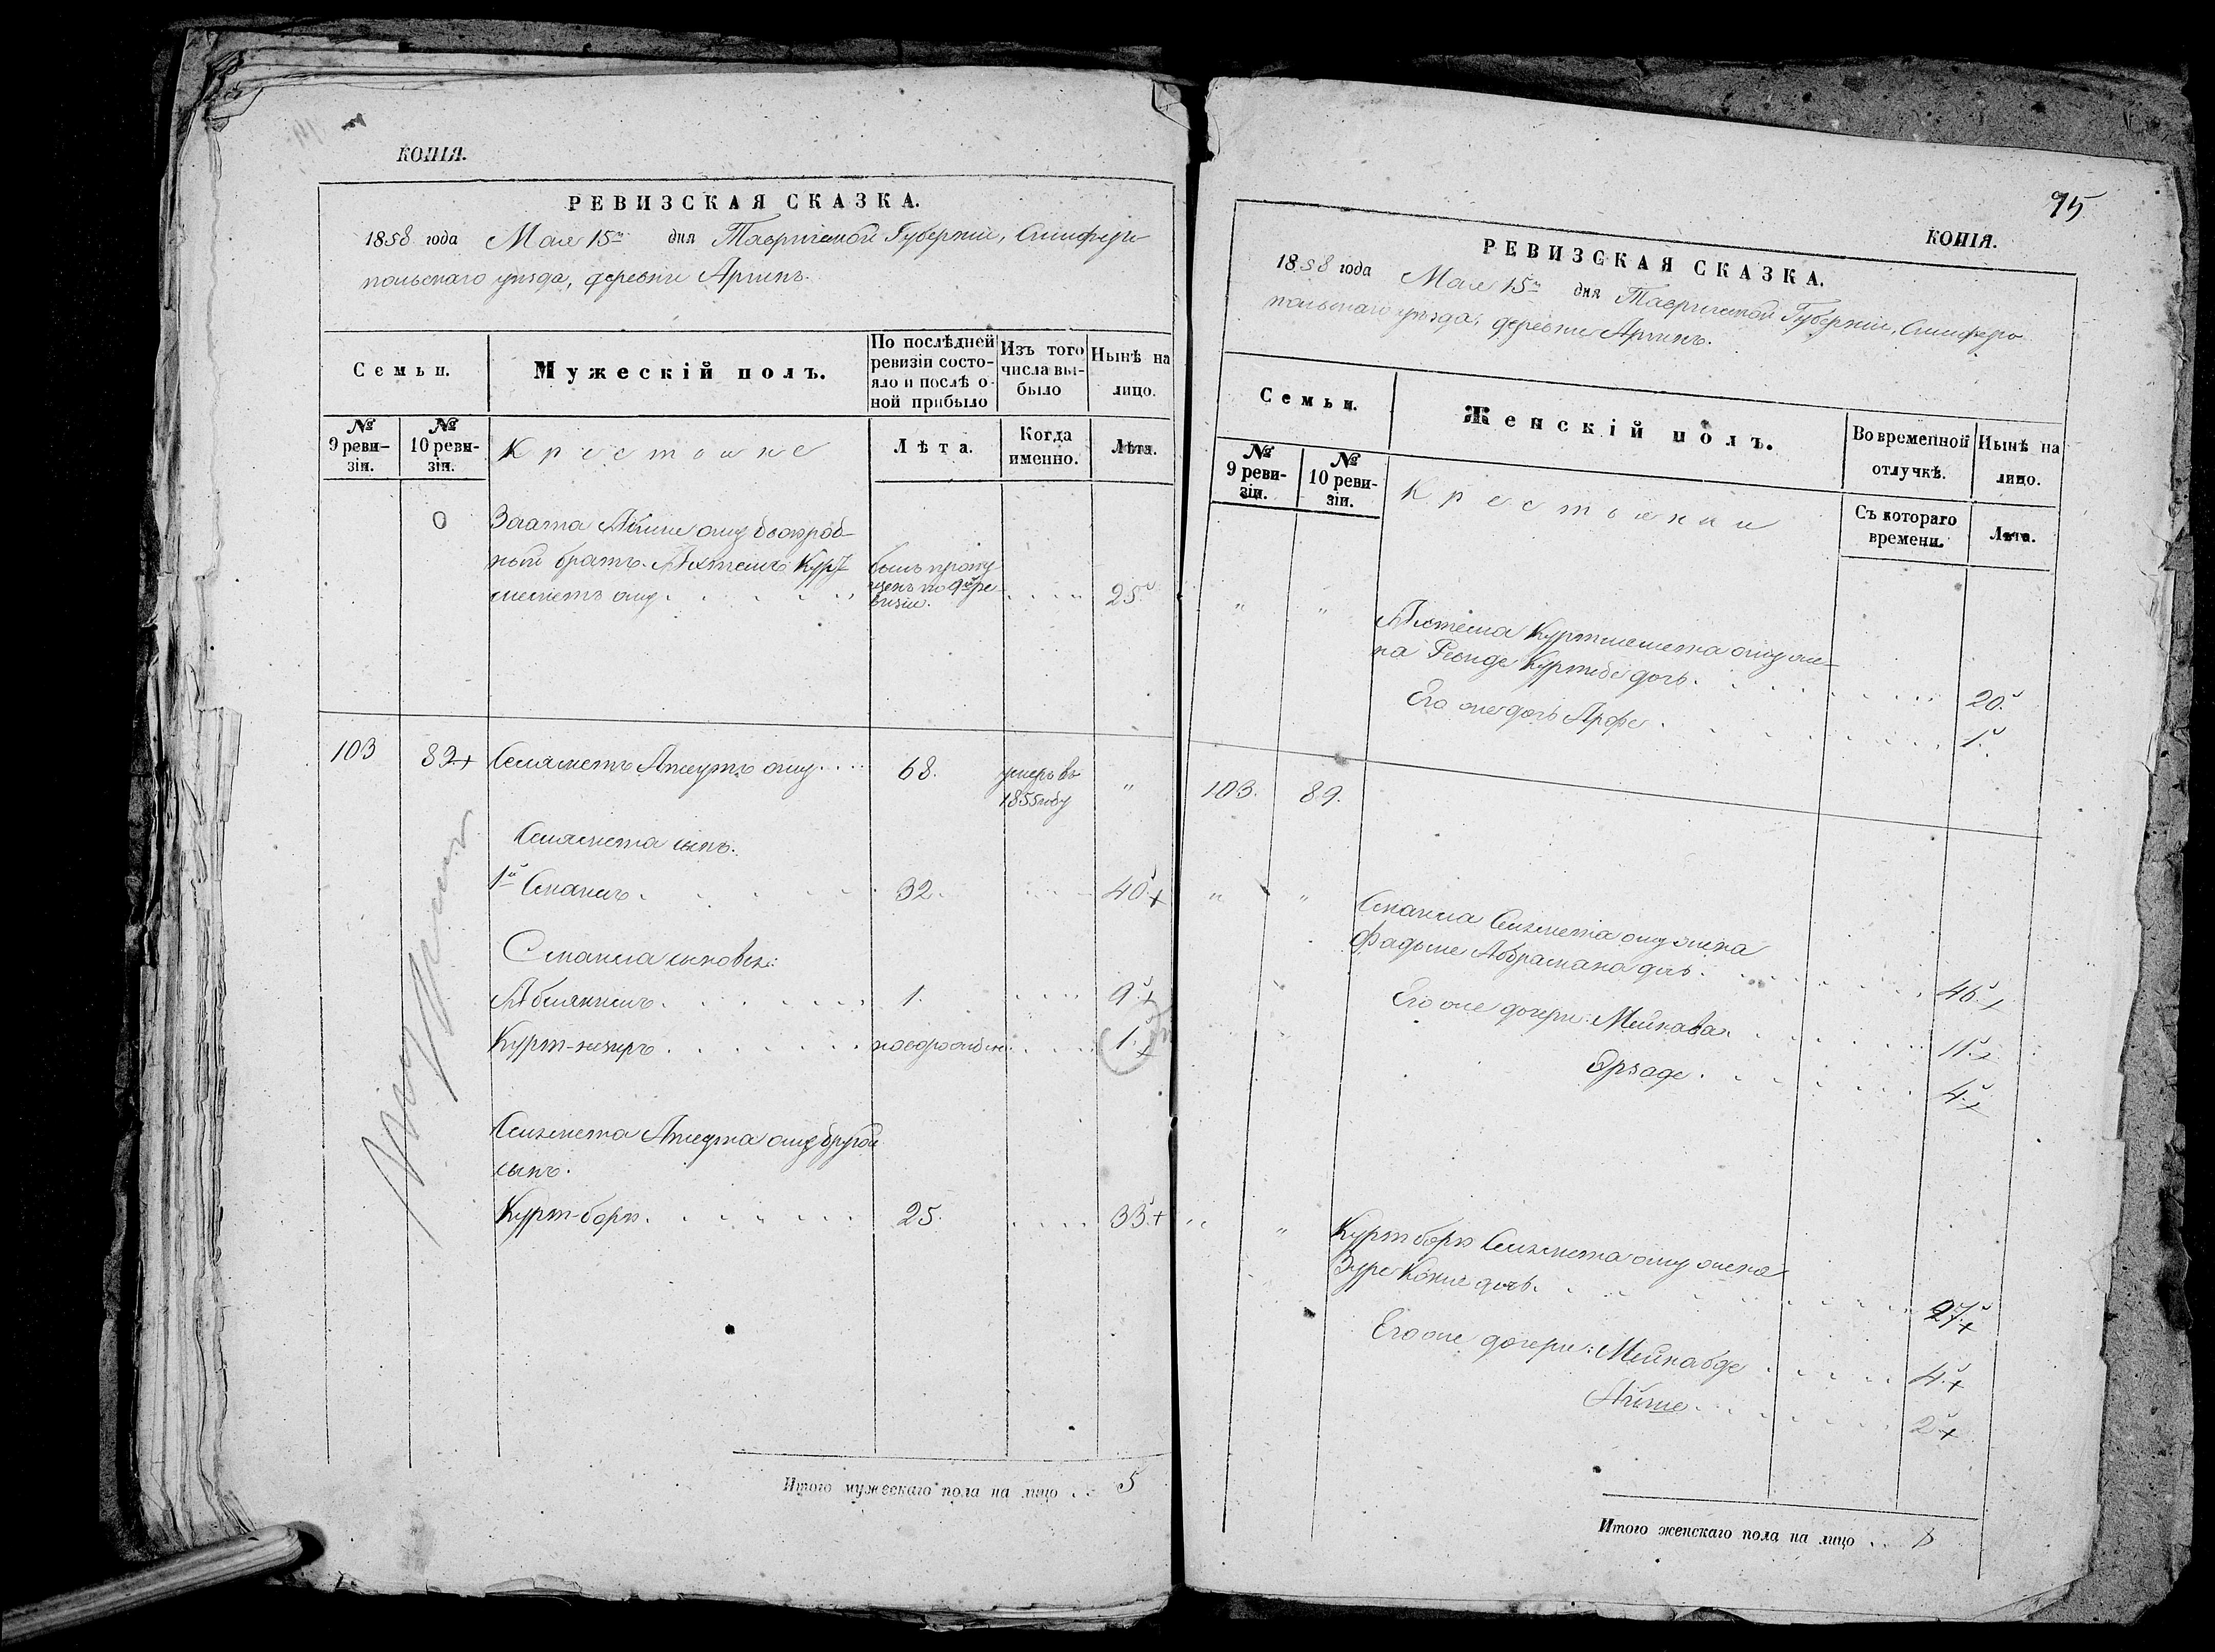 КОПІЯ.
РЕВИЗСКАЯ СКАЗКА.
1858 года Мая 15го дня Таврической Губерніи, Симферо
польскаго уезда, деревни Аргинъ.
Семьи.
Мужескій полъ.
По послѣдней ревизіи состо-яло и послѣ о-ной прибыло
Изъ того числа вы-было
Нынѣ на лицо.
№ 9 реви-зіи.
№ 10 реви-зіи.
Крестьяне
Лѣта.
Когда именно.
Лѣта.
0 Османа оглу двоюрод-
ный братъ Ахтемъ Курт былъ пропу
меметъ оглу щенъ по 9й ре 25.
визіи.
103 89+ Сеиаметъ Аметъ оглу 68. умеръ въ "
1855 году
Сеиамета сынъ.
1й Смаилъ 32. 40.+
Смаила сыновья:
Абселямъ 1. 9.+
Курт-незиръ новорожден 1.+
Сеиамета Амета оглу другой
сынъ.
Курт-бари 25. 33.+
Итого мужескаго пола на лицо 5
95
КОПІЯ.
РЕВИЗСКАЯ СКАЗКА.
1858 года Мая 15го дня Таврической Губерніи, Симферо
польскаго уезда, деревни Аргинъ.
Семьи.
Женскій полъ.
Во временной отлучкѣ.
Нынѣ на лицо.
№ 9 реви-зіи.
№ 10 реви-зіи.
Крестьянки
Съ котораго времени.
Лѣта.
" " Ахтема Куртмемета оглу же-
на дочь. 20.
Его же дочь Арфе. 1.
103. 89.
" " Смаила Сеиамета оглу жена
Фадьме Абрамана дочь. 46.+
Его же дочери: Мейнава. 11.+
Эрзаде. 4.+
" " Курт бари Сеиамета оглу жена
Зуре дочь. 27.+
Его же дочери: Мейнабде 4.+
Айше. 2.+
Итого женскаго пола на лицо 8